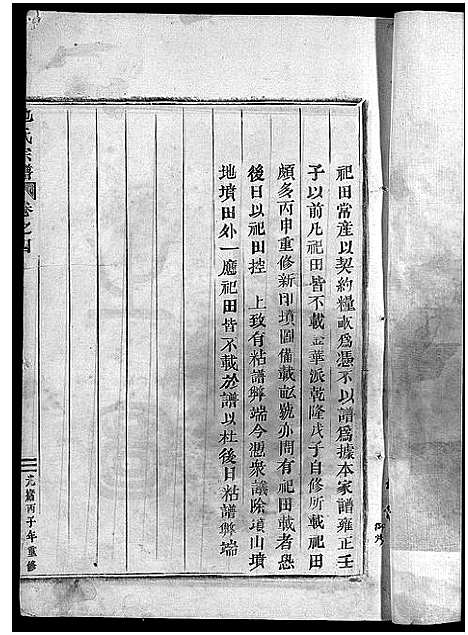 祀田常產以契約糧畝爲憑不以譜爲據本家譜雍正壬
子以前凡祀田皆不載金華派乾隆戊子自修所載祀田
頗多丙申重修新印墳圖備載畝號亦間有祀田載者恐
後日以祀田控 上致有粘譜弊端今憑衆議除墳山墳
地墳田外一應祀田皆不載於譜以杜後日粘譜弊端
氏宗譜 卷之四
光緒丙子年重修